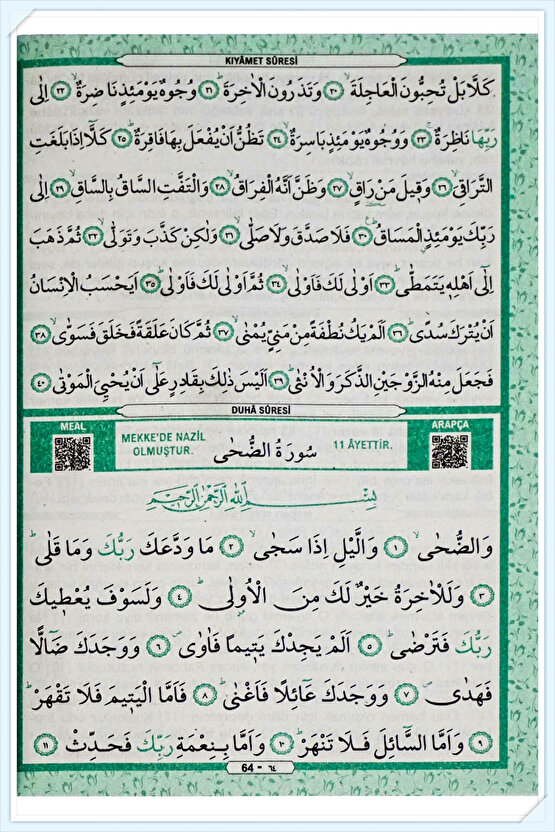 KIYÂMET SÛRESİ
كَلَّا بَلْ تُحِبُّونَ الْعَاجِلَةَۙ ﴿٢٠﴾ وَتَذَرُونَ الْاٰخِرَةَۜ ﴿٢١﴾ وُجُوهٌ يَوْمَئِذٍ نَاضِرَةٌۙ ﴿٢٢﴾ اِلٰى
رَبِّهَا نَاظِرَةٌۚ ﴿٢٣﴾ وَوُجُوهٌ يَوْمَئِذٍ بَاسِرَةٌۙ ﴿٢٤﴾ تَظُنُّ اَنْ يُفْعَلَ بِهَا فَاقِرَةٌۜ ﴿٢٥﴾ كَلَّٓا اِذَا بَلَغَتِ
التَّرَاقِيَۙ ﴿٢٦﴾ وَق۪يلَ مَنْ رَاقٍۙ ﴿٢٧﴾ وَظَنَّ اَنَّهُ الْفِرَاقُۙ ﴿٢٨﴾ وَالْتَفَّتِ السَّاقُ بِالسَّاقِۙ ﴿٢٩﴾ اِلٰى
رَبِّكَ يَوْمَئِذٍ الْمَسَاقُۜ ﴿٣٠﴾ فَلَا صَدَّقَ وَلَا صَلّٰىۙ ﴿٣١﴾ وَلٰكِنْ كَذَّبَ وَتَوَلّٰىۙ ﴿٣٢﴾ ثُمَّ ذَهَبَ
اِلٰٓى اَهْلِه۪ يَتَمَطّٰىۜ ﴿٣٣﴾ اَوْلٰى لَكَ فَاَوْلٰىۙ ﴿٣٤﴾ ثُمَّ اَوْلٰى لَكَ فَاَوْلٰىۜ ﴿٣٥﴾ اَيَحْسَبُ الْاِنْسَانُ
اَنْ يُتْرَكَ سُدًىۜ ﴿٣٦﴾ اَلَمْ يَكُ نُطْفَةً مِنْ مَنِيٍّ يُمْنٰىۙ ﴿٣٧﴾ ثُمَّ كَانَ عَلَقَةً فَخَلَقَ فَسَوّٰىۙ ﴿٣٨﴾
فَجَعَلَ مِنْهُ الزَّوْجَيْنِ الذَّكَرَ وَالْاُنْثٰىۜ ﴿٣٩﴾ اَلَيْسَ ذٰلِكَ بِقَادِرٍ عَلٰٓى اَنْ يُحْيِيَ الْمَوْتٰى ﴿٤٠﴾
DUHÂ SÛRESİ
MEAL
MEKKE'DE NAZİL OLMUŞTUR.
سُورَةُ الضُّحٰى
11 ÂYETTİR.
ARAPÇA
بِسْمِ اللّٰهِ الرَّحْمٰنِ الرَّح۪يمِ
وَالضُّحٰىۙ ﴿١﴾ وَالَّيْلِ اِذَا سَجٰىۙ ﴿٢﴾ مَا وَدَّعَكَ رَبُّكَ وَمَا قَلٰىۜ
﴿٣﴾ وَلَلْاٰخِرَةُ خَيْرٌ لَكَ مِنَ الْاُو۫لٰىۜ ﴿٤﴾ وَلَسَوْفَ يُعْط۪يكَ
رَبُّكَ فَتَرْضٰىۜ ﴿٥﴾ اَلَمْ يَجِدْكَ يَت۪يمًا فَاٰوٰىۖ ﴿٦﴾ وَوَجَدَكَ ضَٓالًّا
فَهَدٰىۖ ﴿٧﴾ وَوَجَدَكَ عَٓائِلًا فَاَغْنٰىۜ ﴿٨﴾ فَاَمَّا الْيَت۪يمَ فَلَا تَقْهَرْۜ
﴿٩﴾ وَاَمَّا السَّٓائِلَ فَلَا تَنْهَرْۜ ﴿١٠﴾ وَاَمَّا بِنِعْمَةِ رَبِّكَ فَحَدِّثْ ﴿١١﴾
64 - ٦٤